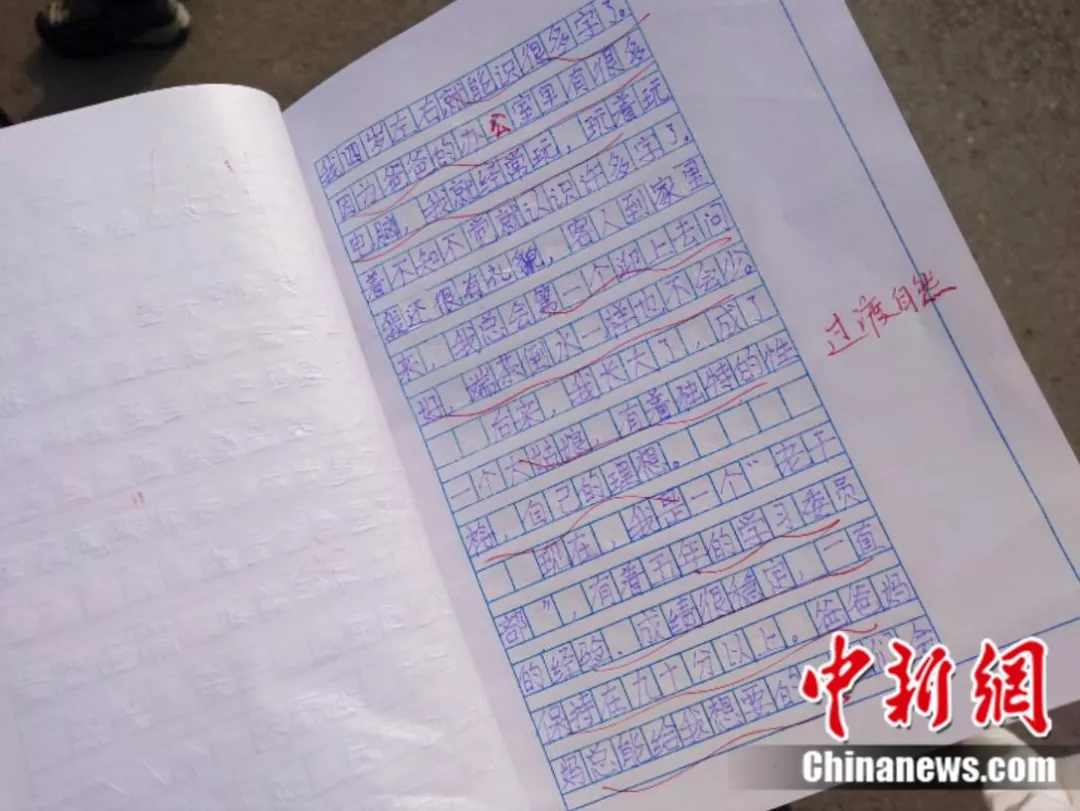 我四岁左右就能识很多字了。
因为爸爸的办公室里有很多
电脑，我就经常玩，玩着玩
着不知不觉就认识许多字了。
我还很有礼貌，客人到家里
来，我总会第一个迎上去问
好，端茶倒水一样也不会少。
后来，我长大了，成了
一个大姑娘，有着独特的性
格，自己的理想。
现在，我是一个“老干
部”，有着五年的学习委员
的经验，成绩很稳定，一直
保持在九十分以上。爸爸妈
妈总能给我想要的
过渡自然
中新網
Chinanews.com